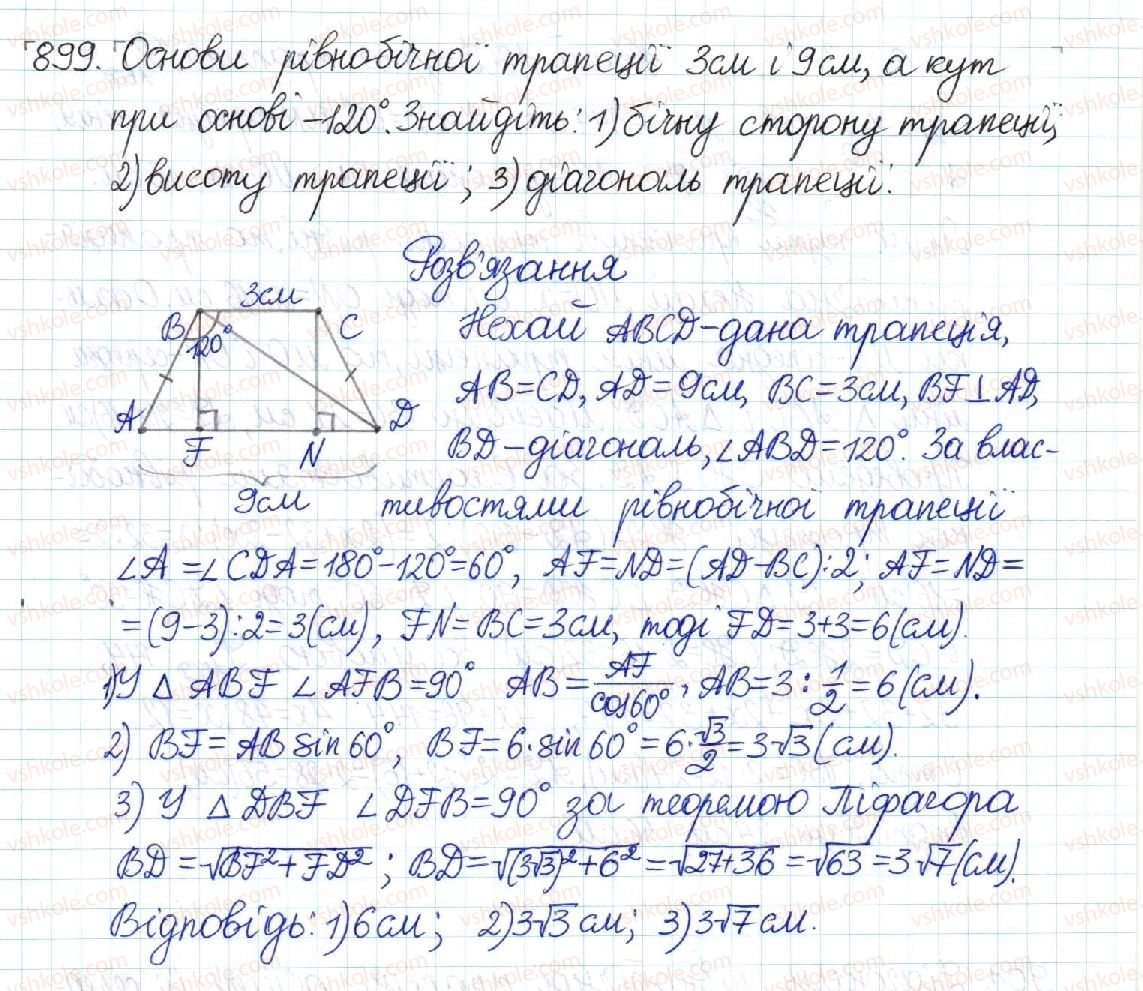 899. Основи рівнобічної трапеції 3см і 9см, а кут
при основі – 120°. Знайдіть: 1) бічну сторону трапеції;
2) висоту трапеції; 3) діагональ трапеції.
Розв'язання
3см
B
120°
C
A
F
N
D
9см
Нехай ABCD – дана трапеція,
AB = CD, AD = 9см, BC = 3см, BF ⊥ AD,
BD – діагональ, ∠ABD = 120°. За влас-
тивостями рівнобічної трапеції
∠A = ∠CDA = 180° – 120° = 60°, AF = ND = (AD – BC) : 2; AF = ND =
= (9 – 3) : 2 = 3 (см), FN = BC = 3см, тоді FD = 3 + 3 = 6 (см).
1) У △ ABF ∠AFB = 90° AB = AF/cos60°, AB = 3 : 1/2 = 6 (см).
2) BF = AB sin 60°, BF = 6 · sin 60° = 6 · √3/2 = 3√3 (см).
3) У △ DBF ∠DFB = 90° за теоремою Піфагора
BD = √(BF² + FD²); BD = √((3√3)² + 6²) = √(27 + 36) = √63 = 3√7 (см).
Відповідь: 1) 6 см; 2) 3√3 см; 3) 3√7 см.